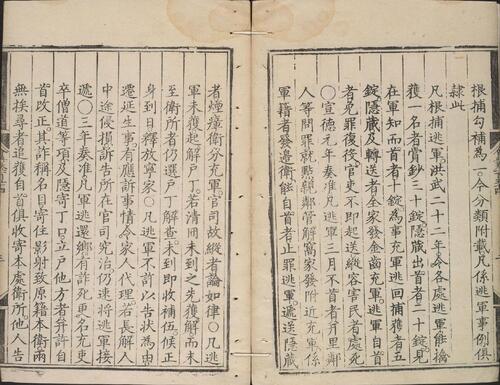 根捕勾補為一今分類附載凡係逃軍事例俱
隷此
凡根捕逃軍洪武二十二年令各處逃軍能擒
獲一名者賞鈔三十錠隱藏出首者二十錠見
在軍知而首者十錠為事充軍逃回捕獲者五
錠隱藏及轉送者全家發金齒充軍逃軍自首
者免罪後官吏不即起送縱容官民者處死
〇宣德元年奏准凡逃軍三月不首者并里鄰
人等問罪就點親鄰管解窩家發附近充軍係
軍籍者發邊衛能自首者止罪逃軍遞送隱藏
者煙瘴衛分充軍官司故縱者論如律〇凡逃
軍未獲起解户丁若清冊未到之先獲解而未
至衛所者仍選户丁解查未到即收補伍候正
身到日釋放寧家〇凡逃軍不許以告狀為由
遷延生事有應訴事情令家人代理若長解人
中途侵損訴告所在官司究治仍速將逃軍接
遞〇三年奏准凡軍逃還鄉有詐死更名充吏
卒僧道等項及隱寄丁口立户他方者并許自
首改正其詐稱名目寄住影射致原籍本衛兩
無挨尋者追獲自首俱收寄本處衛所他人告